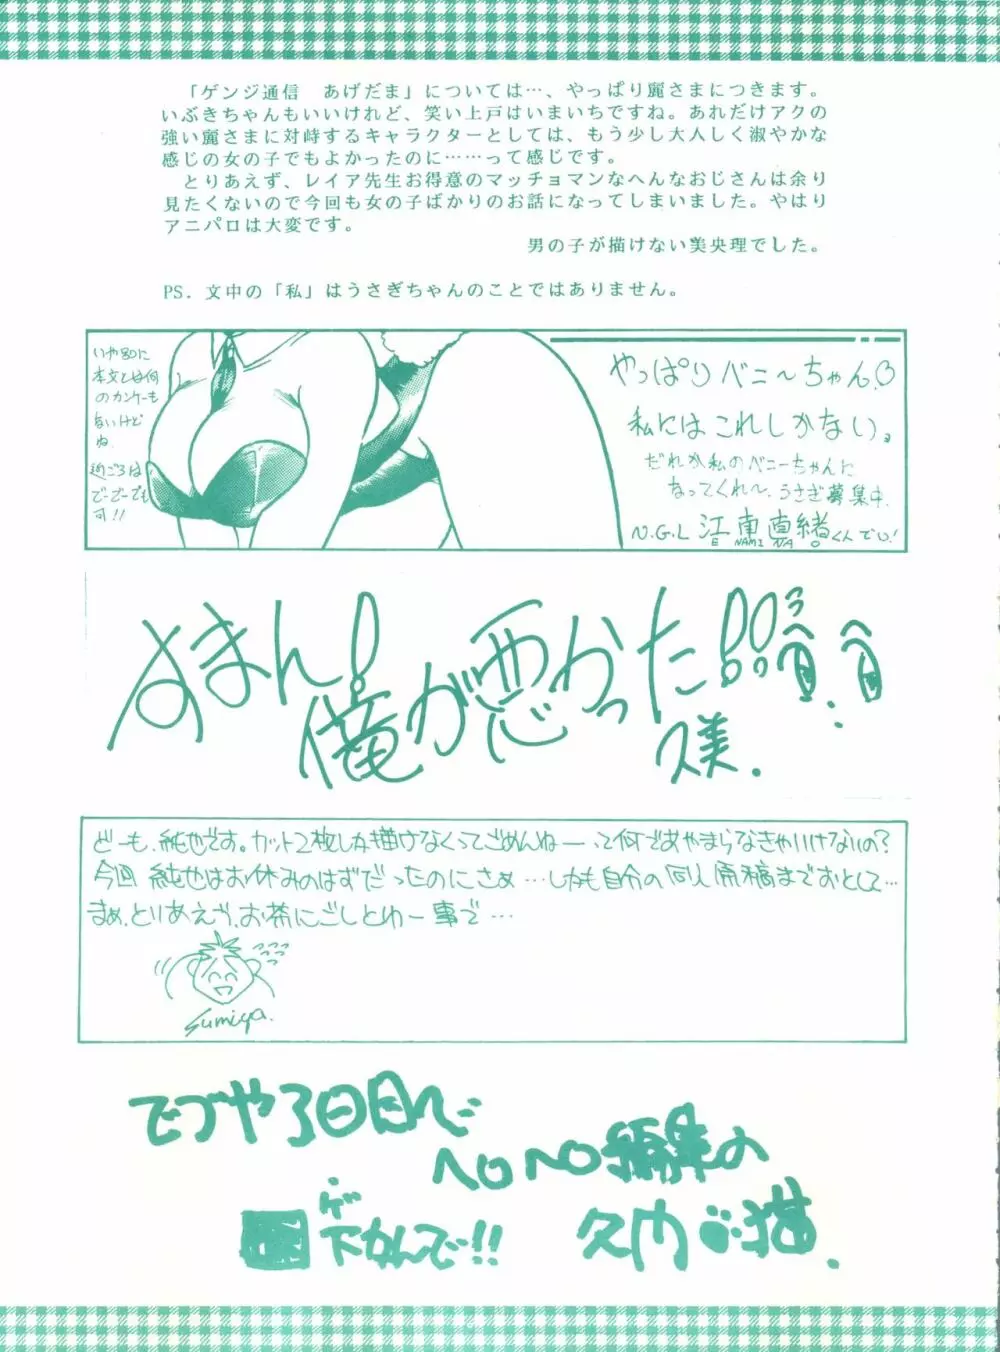 「ゲンジ通信　あげだま」については…、やっぱり麗さまにつきます。
いぶきちゃんもいいけれど、笑い上戸はいまいちですね。あれだけアクの
強い麗さまに対峙するキャラクターとしては、もう少し大人しく淑やかな
感じの女の子でもよかったのに……って感じです。
とりあえず、レイア先生お得意のマッチョマンなへんなおじさんは余り
見たくないので今回も女の子ばかりのお話になってしまいました。やはり
アニパロは大変です。
男の子が描けない美央理でした。
PS．文中の「私」はうさぎちゃんのことではありません。
いや別に
本文とは何
のカンケーも
ないけど
ね
近ごろは
でーでーでも
可!!
やっぱりバニ〜ちゃん♡
私にはこれしかない。
だれか私のバニーちゃんに
なってくれ〜。うさぎ募集中
N.G.L 江南直緒くんでい!
E NAMI NA O
すまん!
俺が悪かった!!
久美.
どーも、純也です。カット2枚しか描けなくってごめんねー って何であやまらなきゃいけないの?
今回 純也はお休みのはずだったのにさぁ…しかも自分の同人原稿までおとして…
まぁ、とりあえず、お茶にごしとゆー事で…
Sumiya.
てつや3日目で
ヘロヘロ編集の
下かんで!!
ゲ
猫.